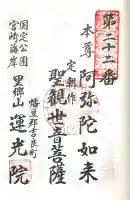 第二十二番
本尊
阿弥陀如来
定朝作
聖観世音菩薩
幡豆郡吉良町
里郷山 運光院
国定公園
宮崎海岸